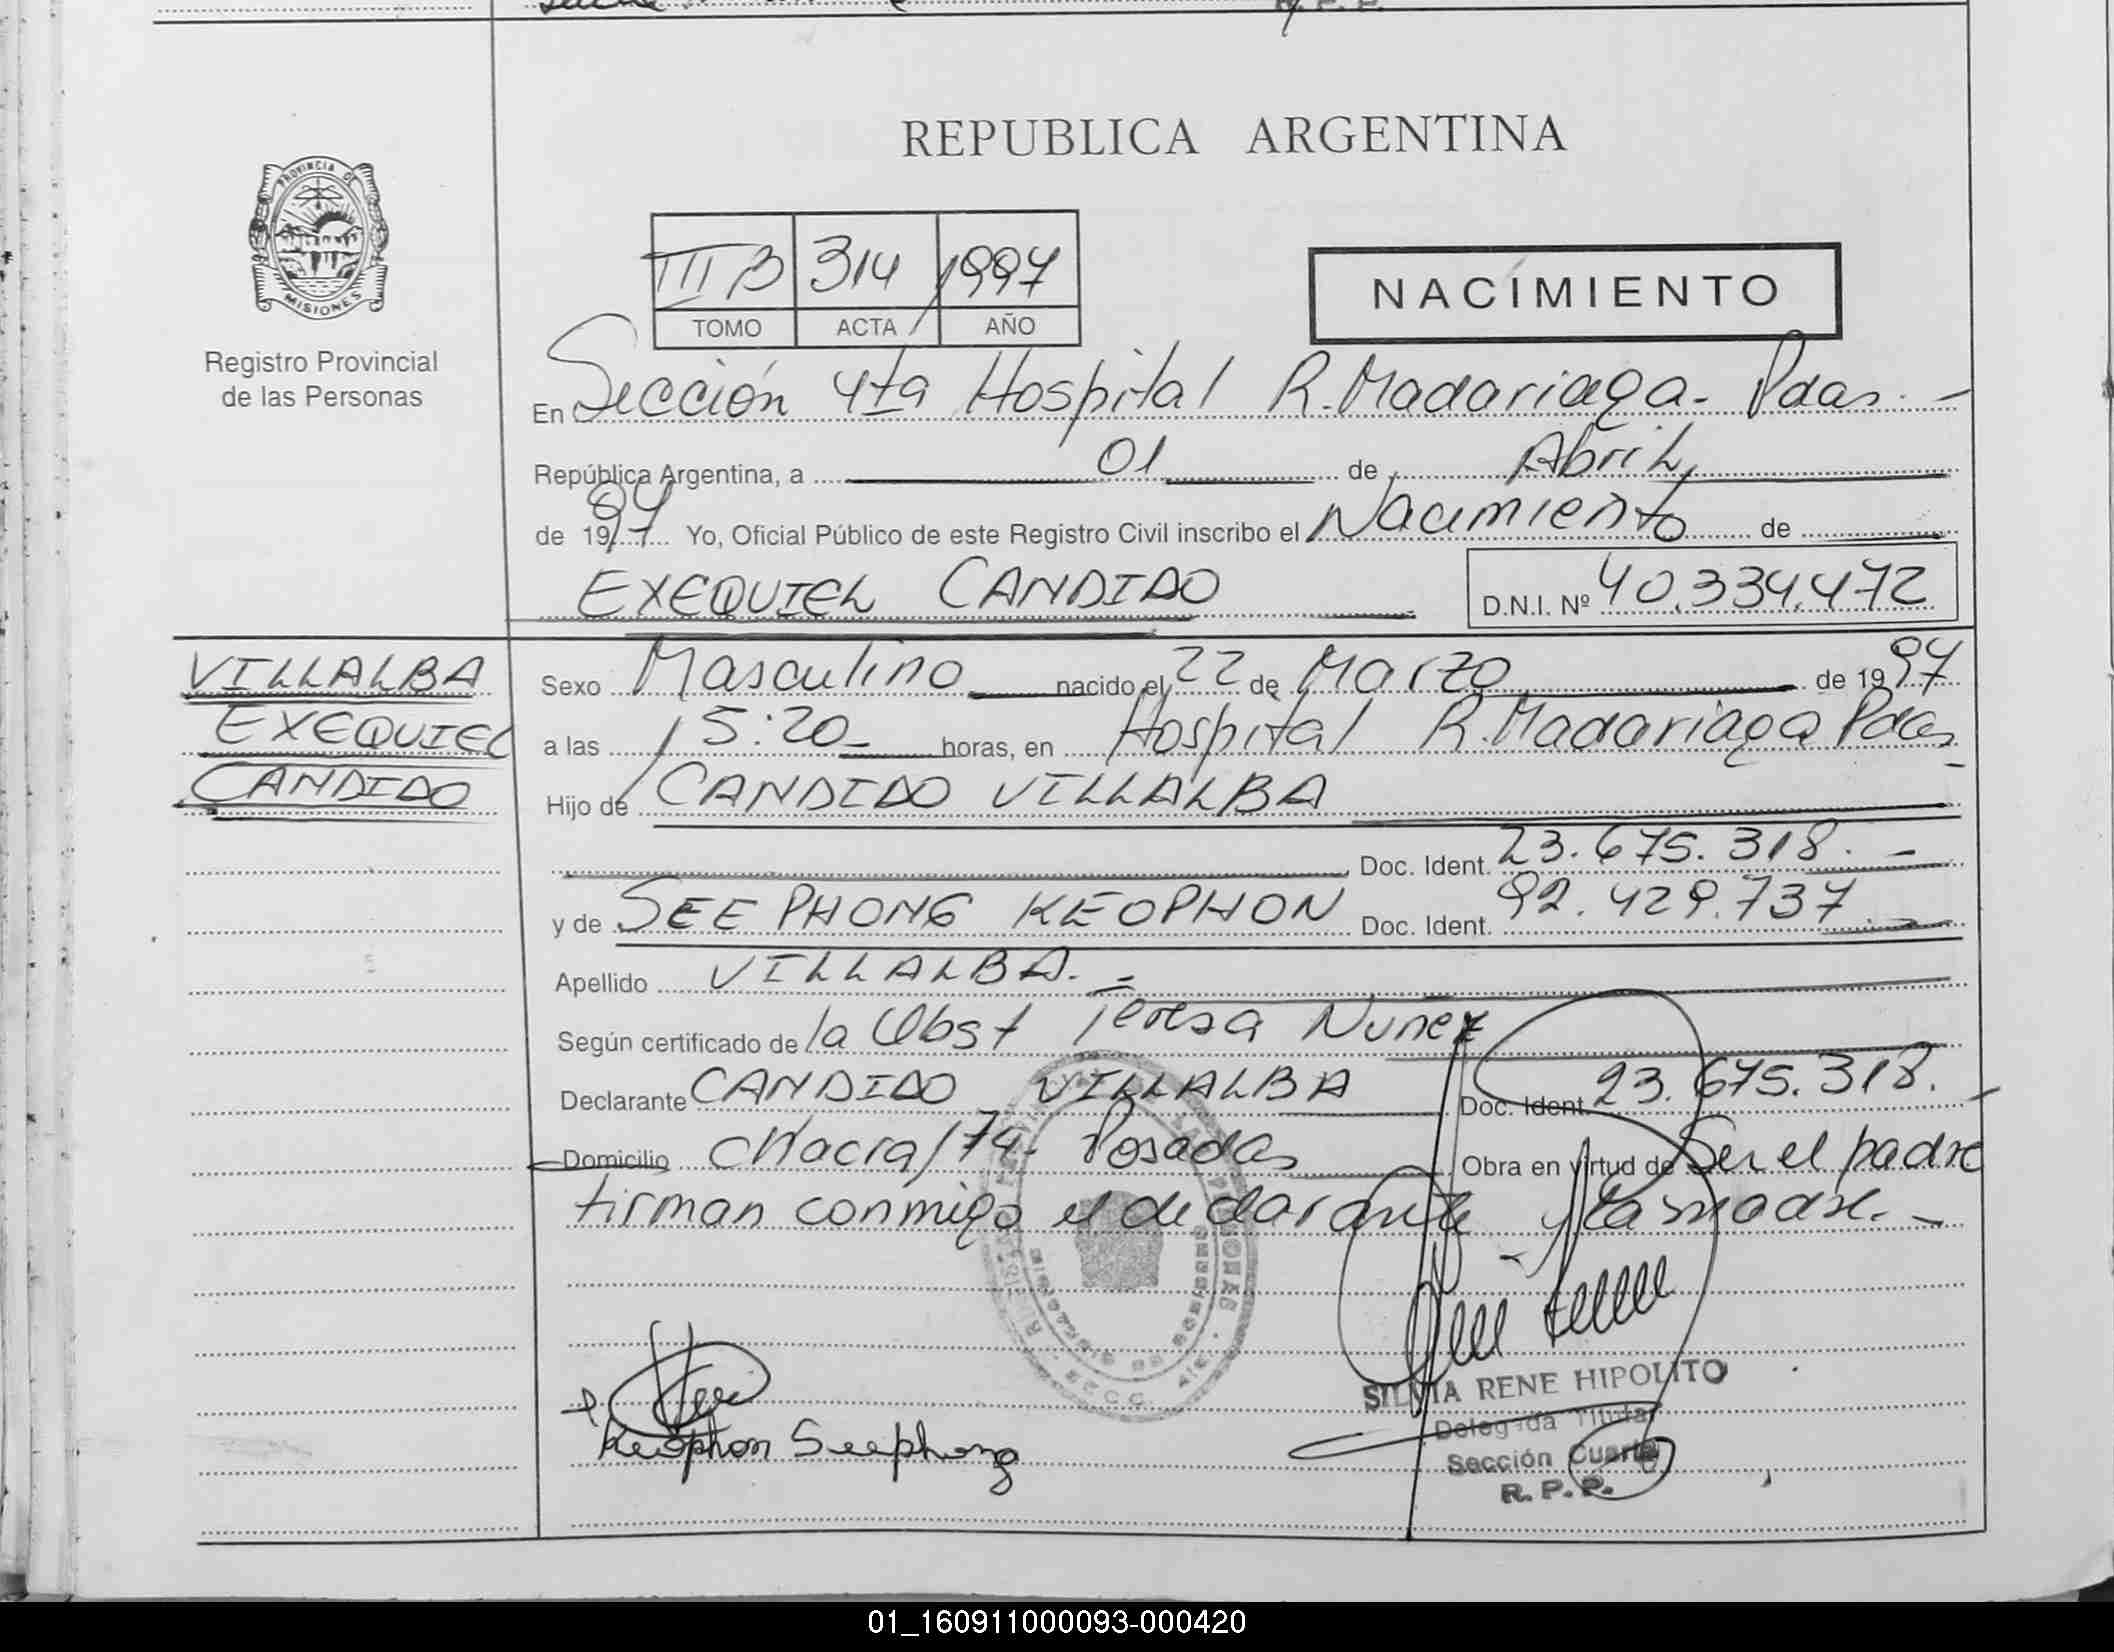 PROVINCIA DE
MISIONES
Registro Provincial
de las Personas
REPUBLICA ARGENTINA
III B 314 1997
TOMO ACTA AÑO
NACIMIENTO
En Sección 4ta Hospital R. Madariaga - Pdas. -
República Argentina, a 01 de Abril
de 1997 Yo, Oficial Público de este Registro Civil inscribo el Nacimiento de
EXEQUIEL CANDIDO D.N.I. Nº 40.334.472
VILLALBA
EXEQUIEL
CANDIDO
Sexo Masculino nacido el 22 de Marzo de 1997
a las 15:20 horas, en Hospital R. Madariaga Pdas -
Hijo de CANDIDO VILLALBA
Doc. Ident. 23.675.318. -
y de SEEPHONG KEOPHON Doc. Ident. 92.429.737
Apellido VILLALBA. -
Según certificado de la Obst Teresa Nuñez
Declarante CANDIDO VILLALBA Doc. Ident. 23.675.318. -
Domicilio Chacra 174 - Posadas Obra en virtud de Ser el padre
firman conmigo el declarante y la madre. -
Keophon Seephong
SILVIA RENE HIPOLITO
Delegada Titular
Sección Cuarta
R. P. P.
01_160911000093-000420